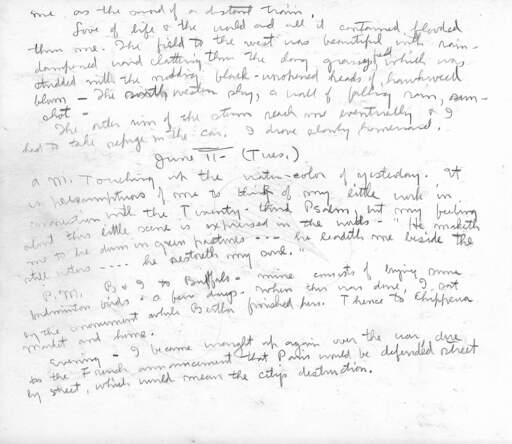 me as the sound of a distant train.
Love of life & the world and all it contained flooded
thru me. The field to the west was beautiful with rain-
dampened wind clattering thru the long grasses, which was
studded with the nodding black-unopened heads of hawkweed
bloom - The southwestern sky, a wall of falling rain, sun-
shot -
The outer rim of the storm reach me eventually & I
had to take refuge in the car. I drove slowly homeward.
June 11 - (Tues.)
A.M. Touching up the water-color of yesterday. It
is presumptious of me to think of my little work in
connection with the Twenty-third Psalm, but my feeling
about this little scene is expressed in the words - "He maketh
me to lie down in green pastures --- he leadeth me beside the
still waters .... he restoreth my soul."
P.M. B & I to Buffalo - mine consists of buying some
badminton birds & a few drugs. When this was done, I sat
by the monument while Bertha finished hers. Thence to Chippewa
market and home.
Evening - I became wrought up again over the war due
to the French announcement that Paris would be defended street
by street, which would mean the city's destruction.